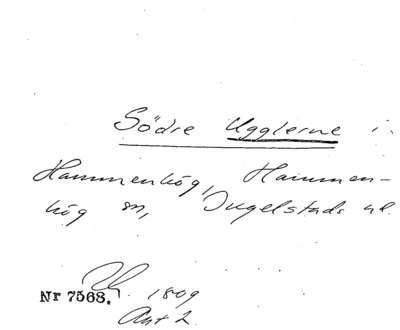 Södre Ugglerne i
Hammenhög, Hammen-
hög sn, Ingelstads hd.
Nr 7568. 1809
Akt 2